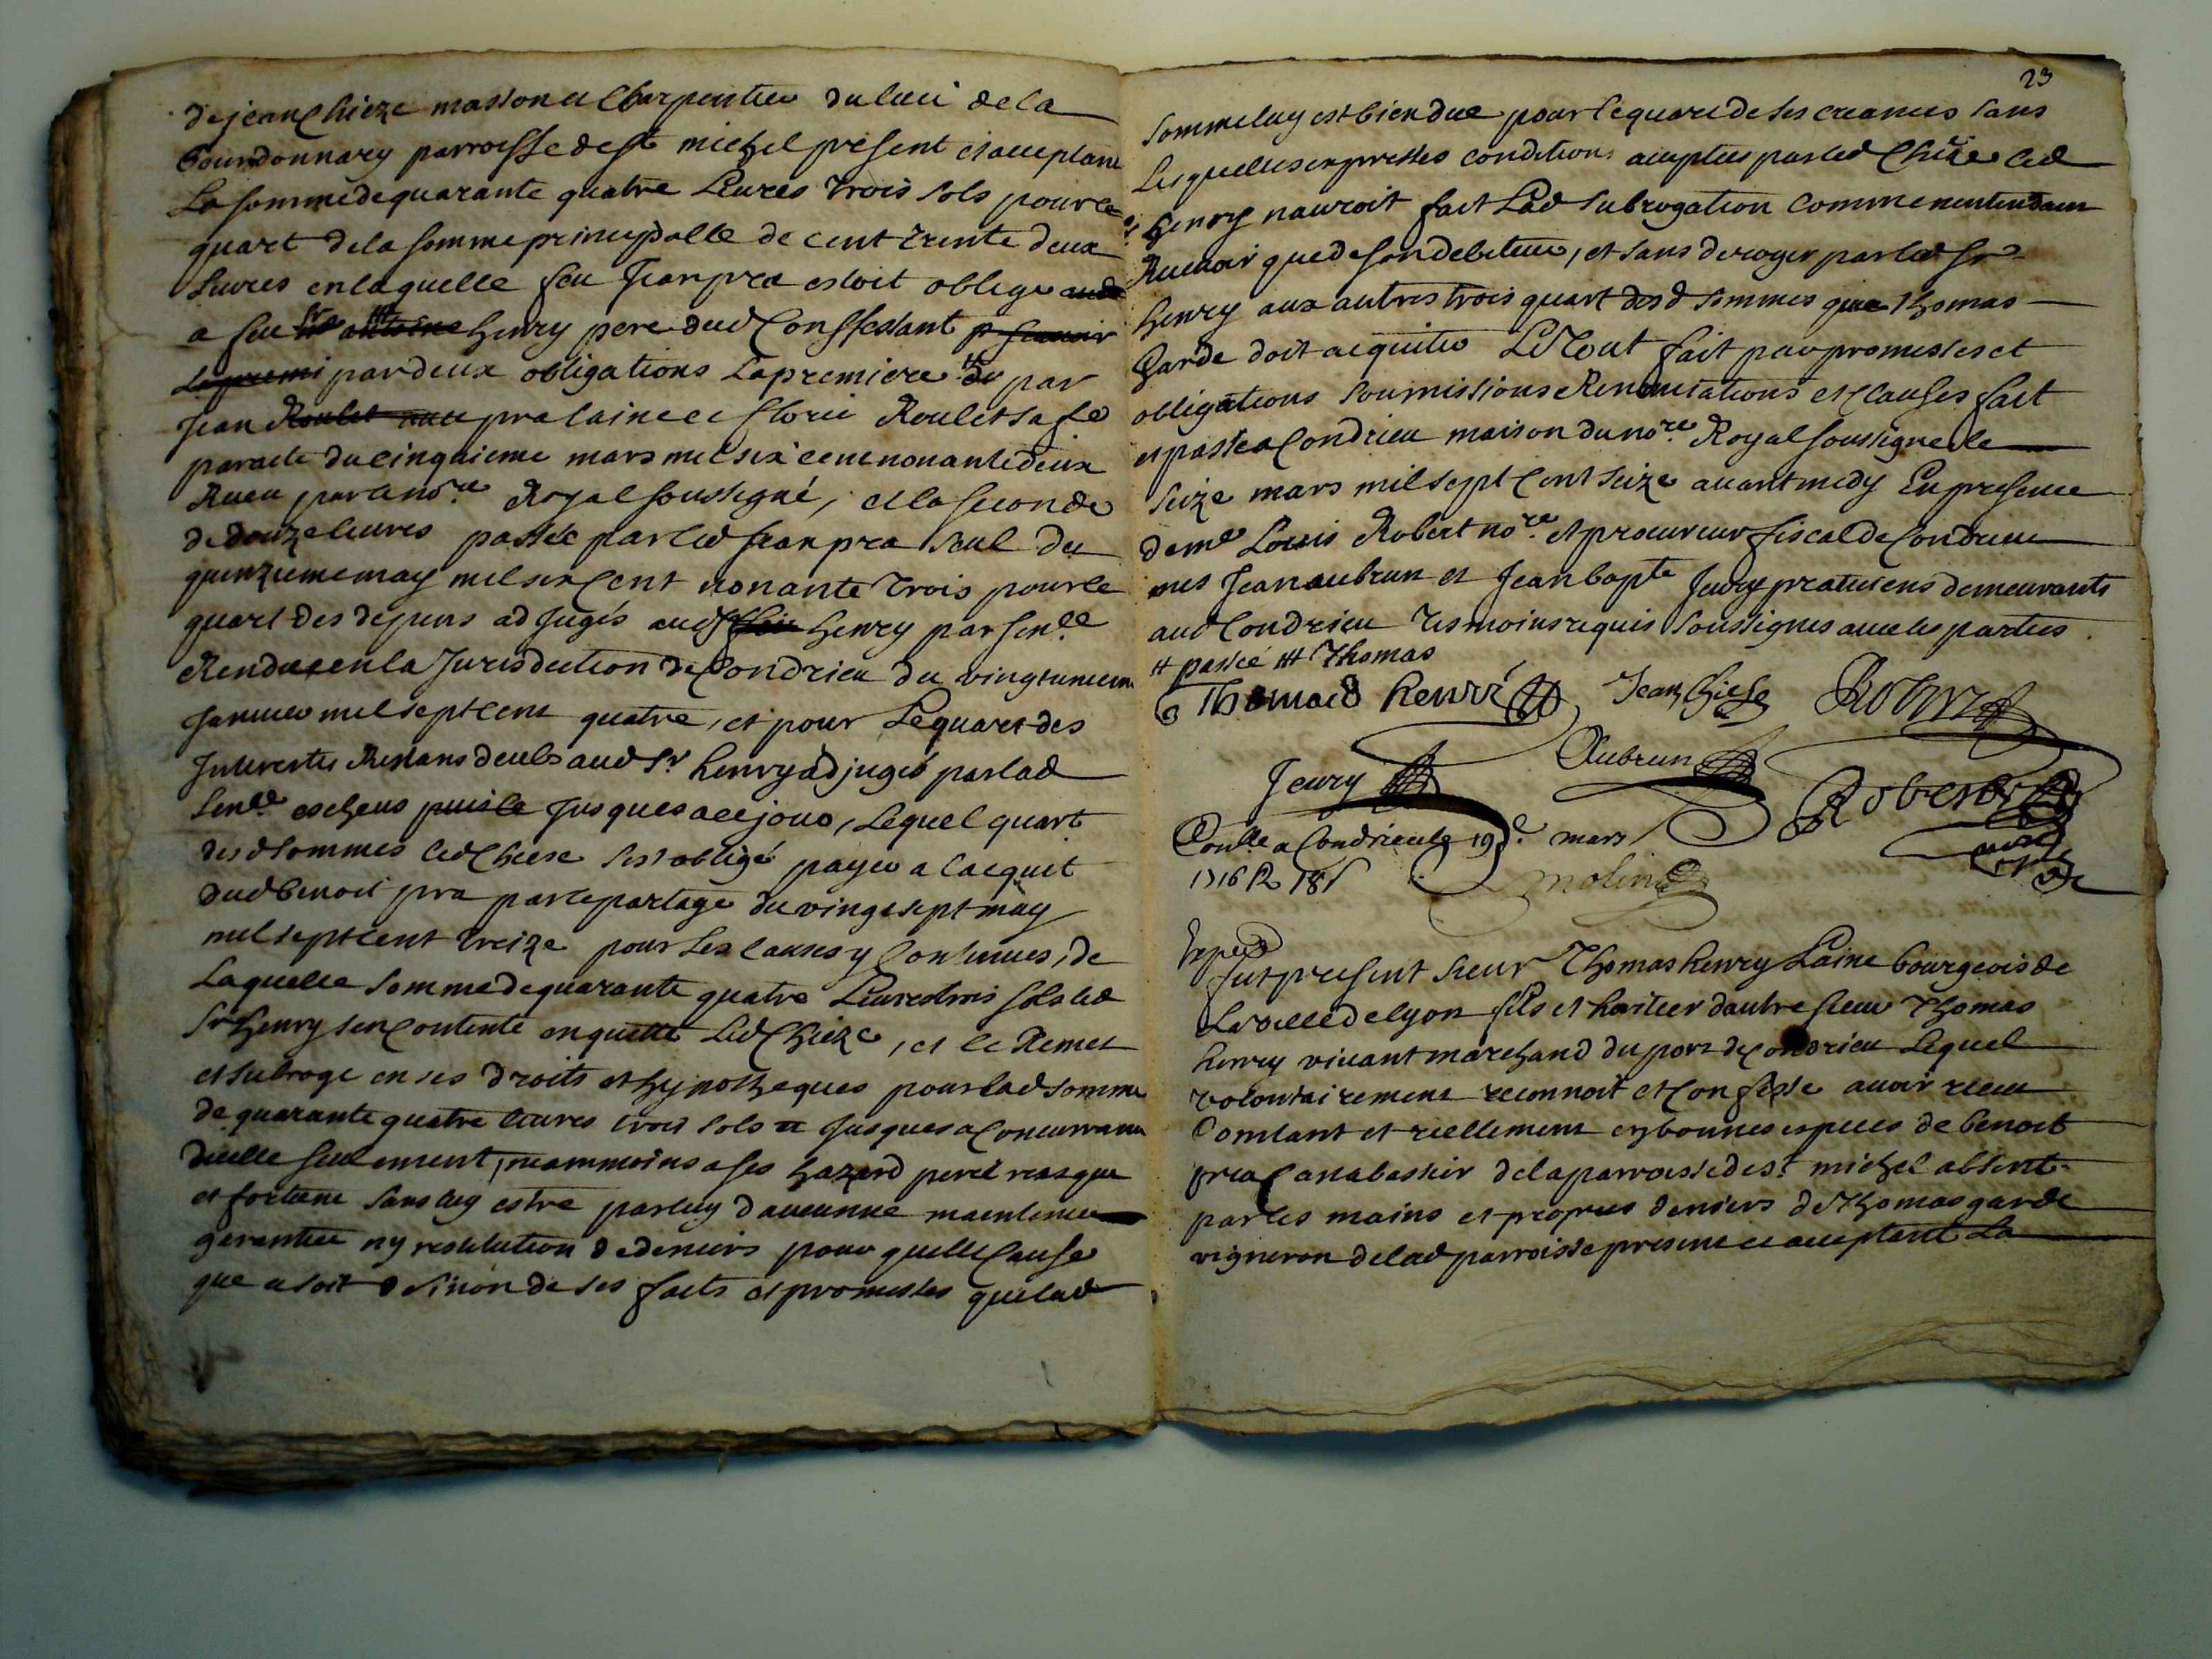 de jean Chieze masson et Charpentier du lieu de la
bourdonnary parroisse de st michel present et acceptant
La somme de quarante quatre Livres trois sols pour le
quart de la somme principalle de cent trente deux
Livres en laquelle feu Jean pra estoit obligé
a feu sr Henry pere dud Conffessant
par deux obligations La premiere par
Jean pra laine et florie Roulet sa fe
par acte du cinquieme mars mil six cent nonante deux
Receu par le nore Royal soussigné, et la seconde
de douze livres passée par led Jean pra seul du
quinzieme may mil six Cent nonante trois pour le
quart des depens adjugés aud henry par senle
Rendue en la Jurisdiction de Condrieu du vingt unieme
Janvier mil sept cent quatre, et pour Le quart des
Interestes Restans deubs aud Sr henry adjugés par lad
Senle escheus puis le Jusques a ce jour, Lequel quart
desd sommes led Chieze sest obligé payer a lacquit
dud benoit pra par le partage du vingt sept may
mil sept cent treize pour Les causes y Contenues, de
Laquelle somme de quarante quatre Livres trois sols led
Sr henry sen Contente en quitte Led Chieze, et le Remet
et subroge en ses droits et hypotheques pour lad somme
de quarante quatre livres trois sols Jusques a Concurrance
dicelle seulement, neammoins a ses hazard peril risque
et fortune sans luy estre par luy daucunne maintenue
garentie ny restitution de deniers pour quelle Cause
que ce soit sinon de ses faits et promesses que lad
23
somme luy est bien due pour le quart de ses creances sans
Lesquelles expresses conditions acceptees par led Chieze led
sr henry nauroit fait Lad subrogation comme nentendant
Recevoir que de son debiteur, et sans deroger par led Sr
henry aux autres trois quart desd sommes que Thomas
garde doit acquitter Le Tout fait par promesses et
obligations soumissions Renontiations et Clauses fait
et passé a Condrieu maison du nore Royal soussigné le
seize mars mil sept Cent seize avant midy En presence
de me Louis Robert nore et procureur fiscal de Condrieu
mes Jean aubrun et Jean bapte Jeury praticiens demeurants
aud Condrieu tesmoins requis soussignes avec les parties
# passée ## Thomas
Thomas henri Jean Chiese Robert
Jeury Aubrun Robert
Conlle a Condrieu le 19e mars
1716 R 18s Molin
Exped
fut present sieur Thomas henry Laine bourgeois de
La ville de lyon fils et haritier dautre sieur Thomas
henry vivant marchand du port de Condrieu Lequel
volontairement reconnoit et Confesse avoir receu
Comtant et reellement en bonnes especes de benoit
pra Canabassier de la parroisse de st michel absent
par les mains et propres deniers de Thomas garde
vigneron de lad parroisse present et acceptant La